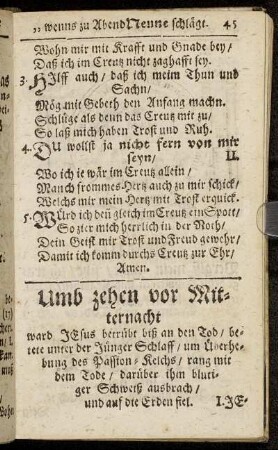 „ wenns zu Abend Neune schlägt. 45
Wohn mir mit Krafft und Gnade bey /
Daß ich im Creutz nicht zaghafft sey.
3. Hilff auch / daß ich mein Thun und
Sachn /
Mög mit Gebeth den Anfang machn.
Schlüge als denn das Creutz mit zu /
So laß mich haben Trost und Ruh.
4. Du wollst ja nicht fern von mir
seyn / II.
Wo ich ie wär im Creutz allein /
Manch frommes Hertz auch zu mir schick /
Welchs mir mein Hertz mit Trost erquick.
5. Würd ich deñ gleich im Creutz ein Spott /
So zier mich herrlich in der Noth /
Dein Geist mir Trost und Freud gewehr /
Damit ich komm durchs Creutz zur Ehr /
Amen.
Umb zehen vor Mit-
ternacht
ward JEsus betrübt biß an den Tod / be-
tete unter der Jünger Schlaff / um Überhe-
bung des Passion-Kelchs / rang mit
dem Tode / darüber ihm bluti-
ger Schweiß ausbrach /
und auf die Erden fiel. I. JE-